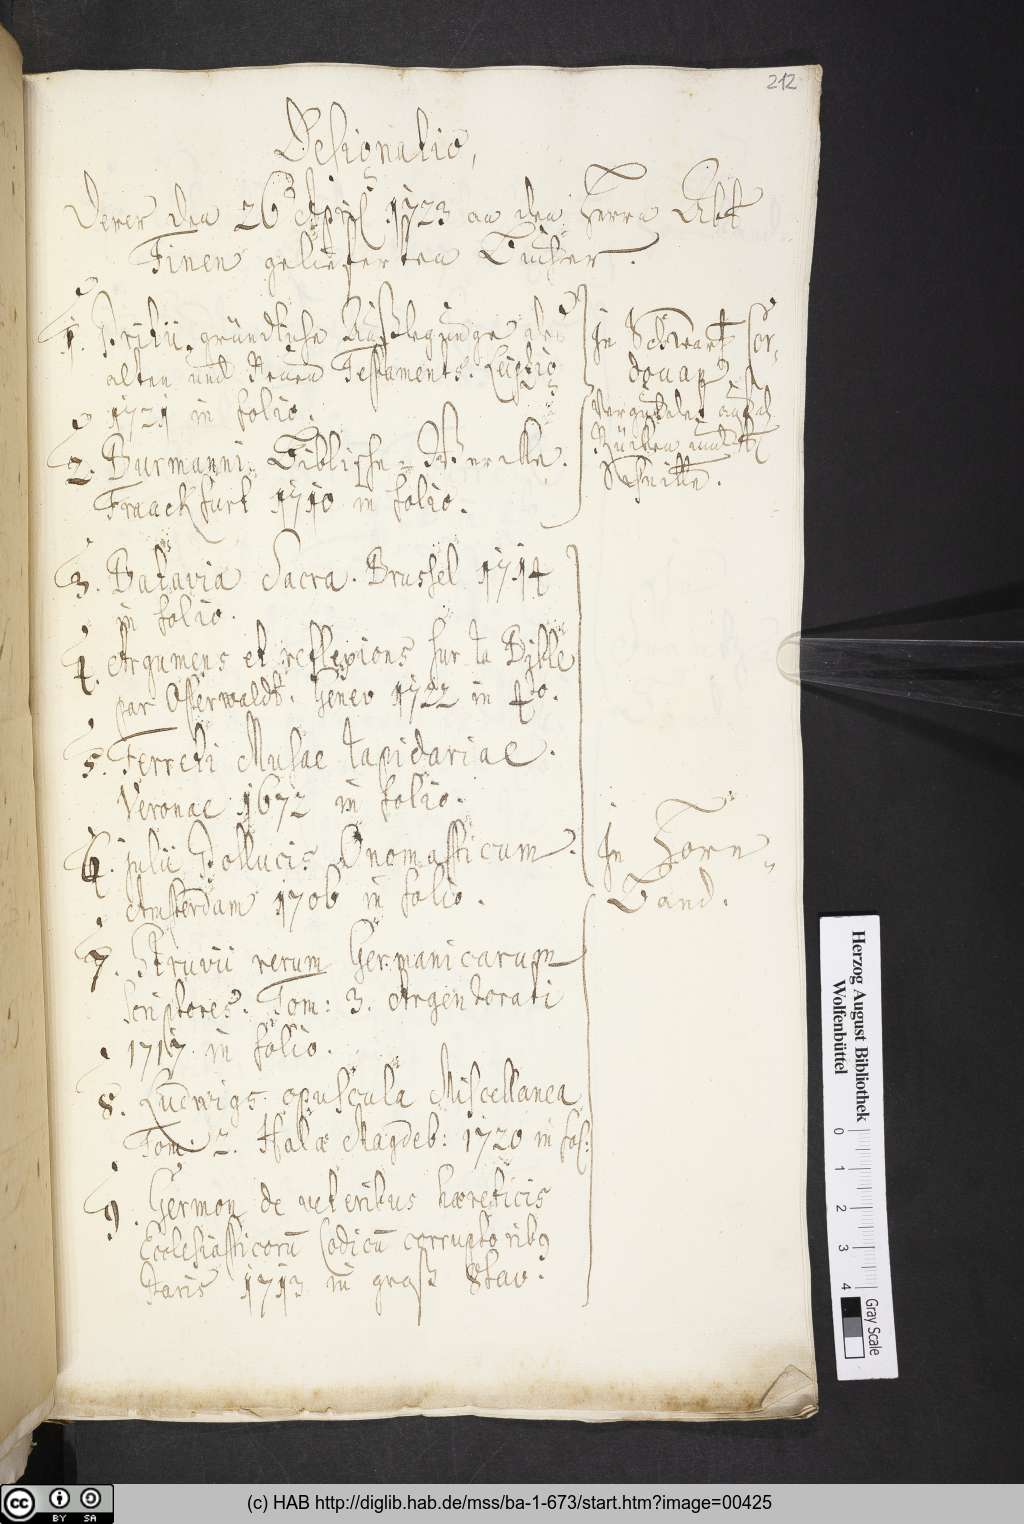 212
Designatio,
Derer den 26 April 1723 an den Herrn Abt
Finen gelieferten Bücher.
1. Pritii gründliche Außlegunge des
alten und Neuen Testaments. Leiptzig
1721 in folio.
In Schwartz Cor-
douan,
verguldet auf d.
Rücken und
Schnitte.
2. Burmanni Biblische-Wercke.
Franckfurt 1710 in folio.
3. Batavia Sacra. Brussel 1714
in folio.
4. Argumens et reflexions sur la Bible
par Osterwaldt. Genev 1722 in 4to.
5. Ferreti Musae lapidariae.
Veronae 1672 in folio.
6. Julii Pollucis Onomasticum.
Amsterdam 1706 in folio.
In Horn-
Band.
7. Struvii rerum Germanicarum
scriptores. Tom: 3. Argentorati
1717 in folio.
8. Ludwigs opuscula Miscellanea
Tom. 2. Halæ Magdeb: 1720 in fol:
9. Germon de veteribus hæreticis
Ecclesiasticorū Codicū corruptorib9
Paris 1713 in groß 8tav:
Herzog August Bibliothek
Wolfenbüttel
0 1 2 3 4
Gray Scale
cc BY SA
(c) HAB http://diglib.hab.de/mss/ba-1-673/start.htm?image=00425